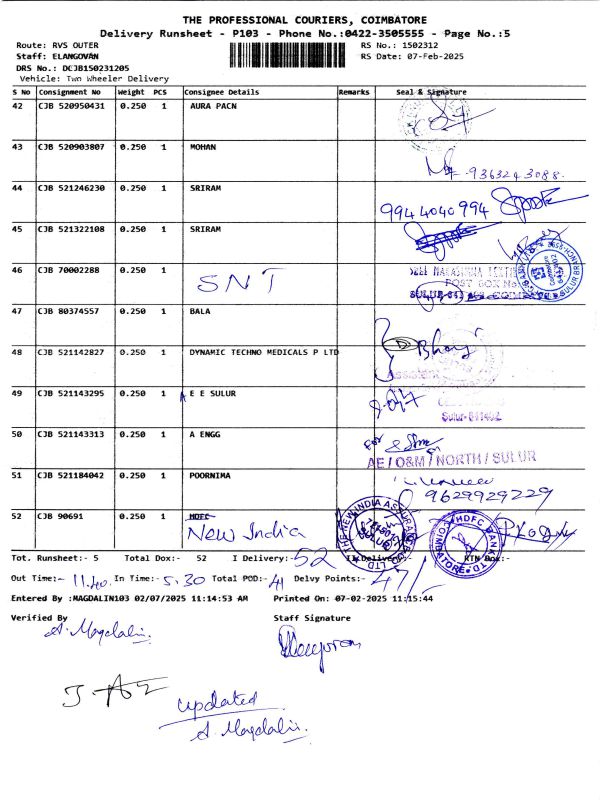 THE PROFESSIONAL COURIERS, COIMBATORE
Delivery Runsheet - P103 - Phone No.:0422-3505555 - Page No.:5
Route: RVS OUTER RS No.: 1502312
Staff: ELANGOVAN RS Date: 07-Feb-2025
DRS No.: DCJB150231205
Vehicle: Two Wheeler Delivery
S No Consignment No Weight PCS Consignee Details Remarks Seal & Signature
42 CJB 520950431 0.250 1 AURA PACN
43 CJB 520903807 0.250 1 MOHAN
9363243088
44 CJB 521246230 0.250 1 SRIRAM
9944040994
45 CJB 521322108 0.250 1 SRIRAM
46 CJB 70002288 0.250 1 SNT
POST BOX No
47 CJB 80374557 0.250 1 BALA
48 CJB 521142827 0.250 1 DYNAMIC TECHNO MEDICALS P LTD
Assistant
49 CJB 521143295 0.250 1 A E E SULUR
Sulur-641402
50 CJB 521143313 0.250 1 A ENGG
for
AE / O&M / NORTH / SULUR
51 CJB 521184042 0.250 1 POORNIMA
9629929229
52 CJB 90691 0.250 1 HDFC
New India
THE NEW INDIA ASSURANCE CO. LTD SULUR
HDFC BANK LTD COIMBATORE
Tot. Runsheet:- 5 Total Dox:- 52 I Delivery:- 52 II Delivery:- RTN Dox:-
Out Time:- 11.40 In Time:- 5.30 Total POD:- 41 Delvy Points:- 47/
Entered By :MAGDALIN103 02/07/2025 11:14:53 AM Printed On: 07-02-2025 11:15:44
Verified By Staff Signature
A. Magdalin.
updated
A. Magdalin.